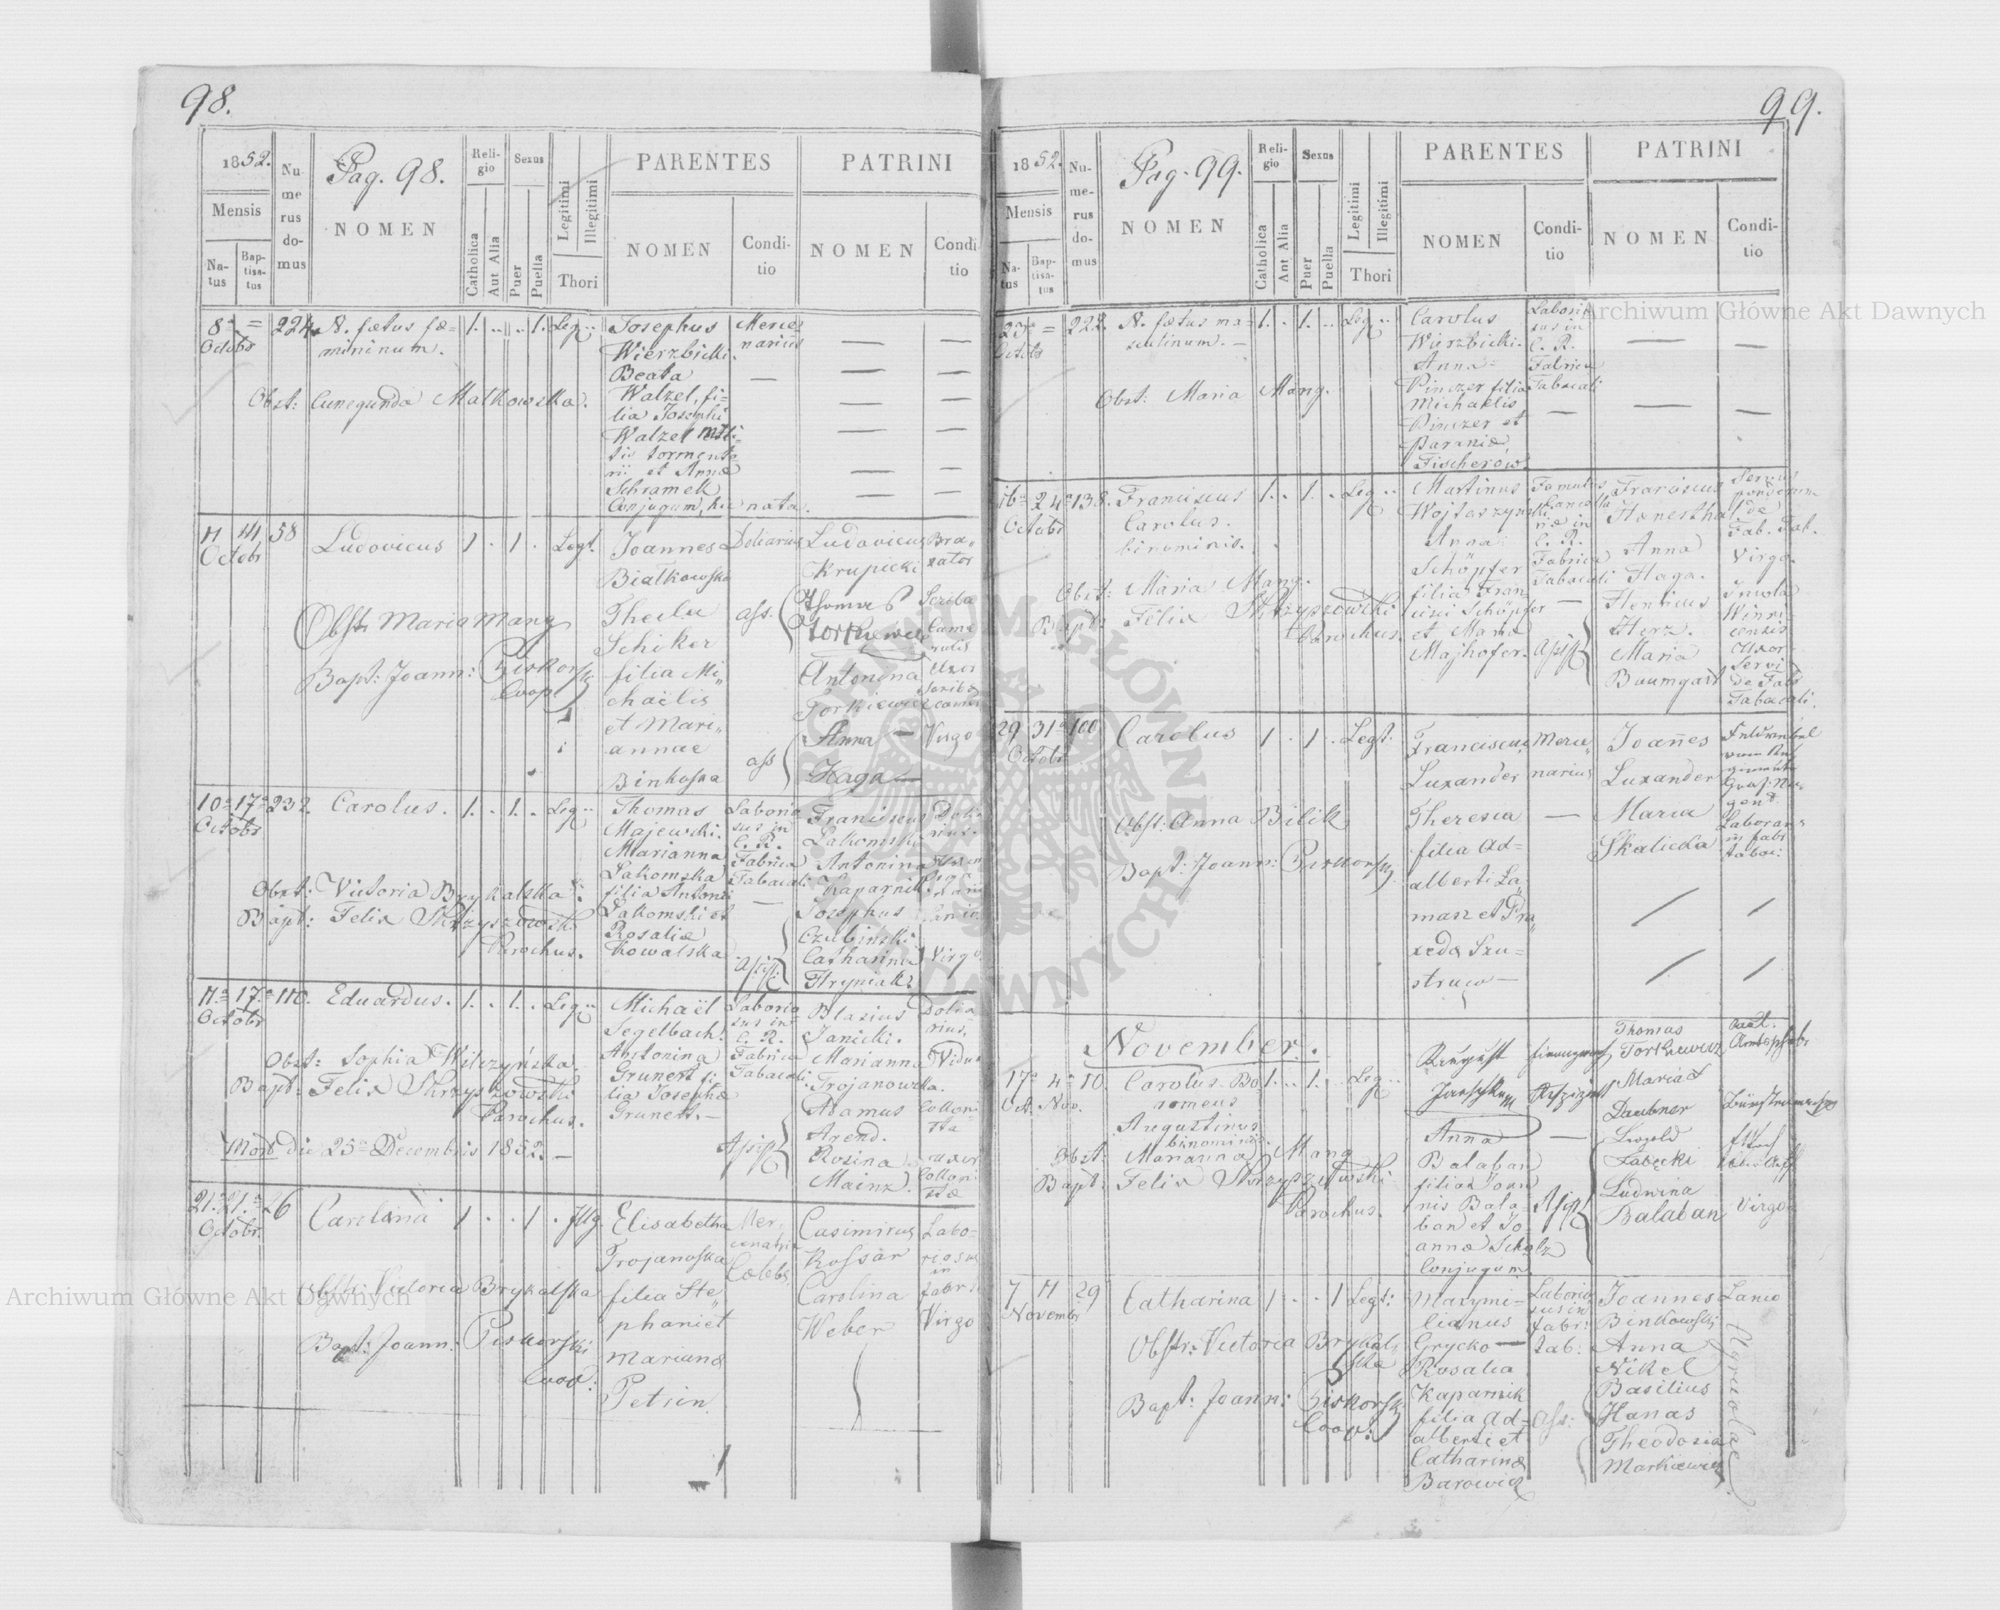 98.
1852.
Mensis
Na-
tus
Bap-
tisa-
tus
Nu-
me
rus
do-
mus
Pag. 98.
NOMEN
Reli-
gio
Catholica
Aut Alia
Sexus
Puer
Puella
Legitimi
Illegitimi
Thori
PARENTES
NOMEN
Condi-
tio
PATRINI
NOMEN
Condi
tio
8a =
Octobr
224. N. fœtus fœ=
mininum.
1. .. .. 1. Leg
Obst: Cunegunda Malkowska.
Josephus
Wierzbicki.
Beata
Walzel, fi-
lia Josephi
Walzel mili-
tis tormenta
rii et Anna
Schramek
Conjugum, hic nata.
Merce
narius
11 14 58
Octobr
Ludovicus 1 . 1 . Legt.
Obst: Maria Mang
Bapt: Joann: Piskorski
Coop:
Joannes
Białkowski
Thecla
Schiker
filia Mi„
chaëlis
et Mari„
annae
Binkoska
Doliarius
ass.
ass
Ludovicus
Krupicki
Thomas
Torkiewicz
Antonina
Torkiewicz
Anna —
Haga —
Bra„
xator
Scriba
Came
ralis
Uxor
Scribæ
Virgo
10a 17a 232.
Octobr
Carolus. 1. . 1. . Leg
Obst: Victoria Brykalska.
Bapt: Felix Skrzyszowski
Parochus.
Thomas
Majewski.
Marianna
Lakomska
filia Antonii
Lakomski et
Rosaliæ
Kowalska
Laborio
sus in
C. R.
Fabrica
Tabacali
Assist:
Franciscus
Lakomski
Antonina
Kaparnik
Josephus
Czubinski
Catharina
Hryniak
Virgo
11a 17a 110.
Octobr
Eduardus. 1. . 1. . Leg
Obst: Sophia Wilczyńska.
Bapt: Felix Skrzyszowski
Parochus.
Mort: die 25a Decembris 1852. —
Michaël
Segelbach.
Antonina
Grunert fi
lia Josephæ
Grunert. —
Laborio
sus in
C. R.
Fabrica
Tabacali
Assist:
Blasius
Janicki.
Marianna
Trojanowska.
Adamus
Arend.
Rosina
Mainz.
Dolia
rius.
Vidua
Colloni
sta
uxor
Colloni
stæ
21. 21. 26
Octobr.
Carolina 1 . . 1 . Illg
Obst: Victoria Brykalska
Bapt: Joann: Piskorski
Coop:
Elisabetha
Trojanoska
filia Ste„
phani et
Mariana
Petrin.
Mer„
cenaria
Cœlebs
Casimirus
Kossar
Carolina
Weber
Labo-
riosus
in
fabri
Virgo
99.
1852.
Mensis
Na-
tus
Bap-
tisa-
tus
Nu-
me-
rus
do-
mus
Pag. 99.
NOMEN
Reli-
gio
Catholica
Ant Alia
Sexus
Puer
Puella
Legitimi
Illegitimi
Thori
PARENTES
NOMEN
Condi-
tio
PATRINI
NOMEN
Condi-
tio
23a =
Octobr
224. N. fœtus ma-
sculinum. —
1. .. 1. .. Leg
Obst: Maria Mang.
Carolus
Wierzbicki.
Anna
Pinczer filia
Michaelis
Pinczer et
Paraniæ
Fischerów.
Laborio
sus in
C. R.
Fabrica
Tabacali
16a 24a 138.
Octobr
Franciscus
Carolus.
binominis.
1. . 1. . Leg
Obst: Maria Mang.
Bapt: Felix Skrzyszowski
Parochus.
Martinus
Wojtaszyński
Anna
Schöpfer
filia Fran-
cisci Schöpfer
et Maria
Majhofer.
Famulus
Cancella
riæ in
C. R.
Fabrica
Tabacali
Assist:
Franciscus
Hœnestha
Anna
Haga.
Henricus
Herz.
Maria
Baumgart
Servus
ponderum
de
Fab. Tab.
Virgo.
Incola
Winni
censis.
Uxor
Servi
de Fab.
Tabacali.
29 31a 100
Octobr
Carolus 1 . 1 . . Legt:
Obst: Anna Bilik
Bapt: Joann: Piskorski
Franciscus
Luxander
Theresia
filia Ad-
alberti La„
masz et Pra
xeda Szu-
struw —
Merce„
narius
Joañes
Luxander
Maria
Skalicka
Feldwaibel
Laborans
in fabr
tabac:
November.
17a 4a 10.
Oct. Nov.
Carolus Bo
romeus
Augustinus
binominis.
1. .. 1. .. Leg
Obst: Marianna Mang
Bapt: Felix Skrzyszowski
Parochus.
August
Anna
Balaban
filia Joan
nis Bala-
ban et Jo-
anna Scholz
Conjugum.
Assist:
Thomas
Torkiewicz
Maria
Daubner
Leopold
Zarecki
Ludwina
Balaban
Virgo
7 11 29
Novembr
Catharina 1 . . 1 Legt:
Obstr: Victoria Brykal„
ska
Bapt: Joann: Piskorski
Coop:
Maxymi-
lianus
Grycko —
Rosalia
Kaparnik
filia Ad-
alberti et
Catharina
Barowicz
Laborio
sus in
fabr:
tab:
ass:
Joannes
Binkowski
Anna
Nikel
Basilius
Hanas
Theodosia
Markiewicz
Lanio
Agricolae.
Archiwum Główne Akt Dawnych
Archiwum Główne Akt Dawnych
ARCHIWUM GŁÓWNE AKT DAWNYCH